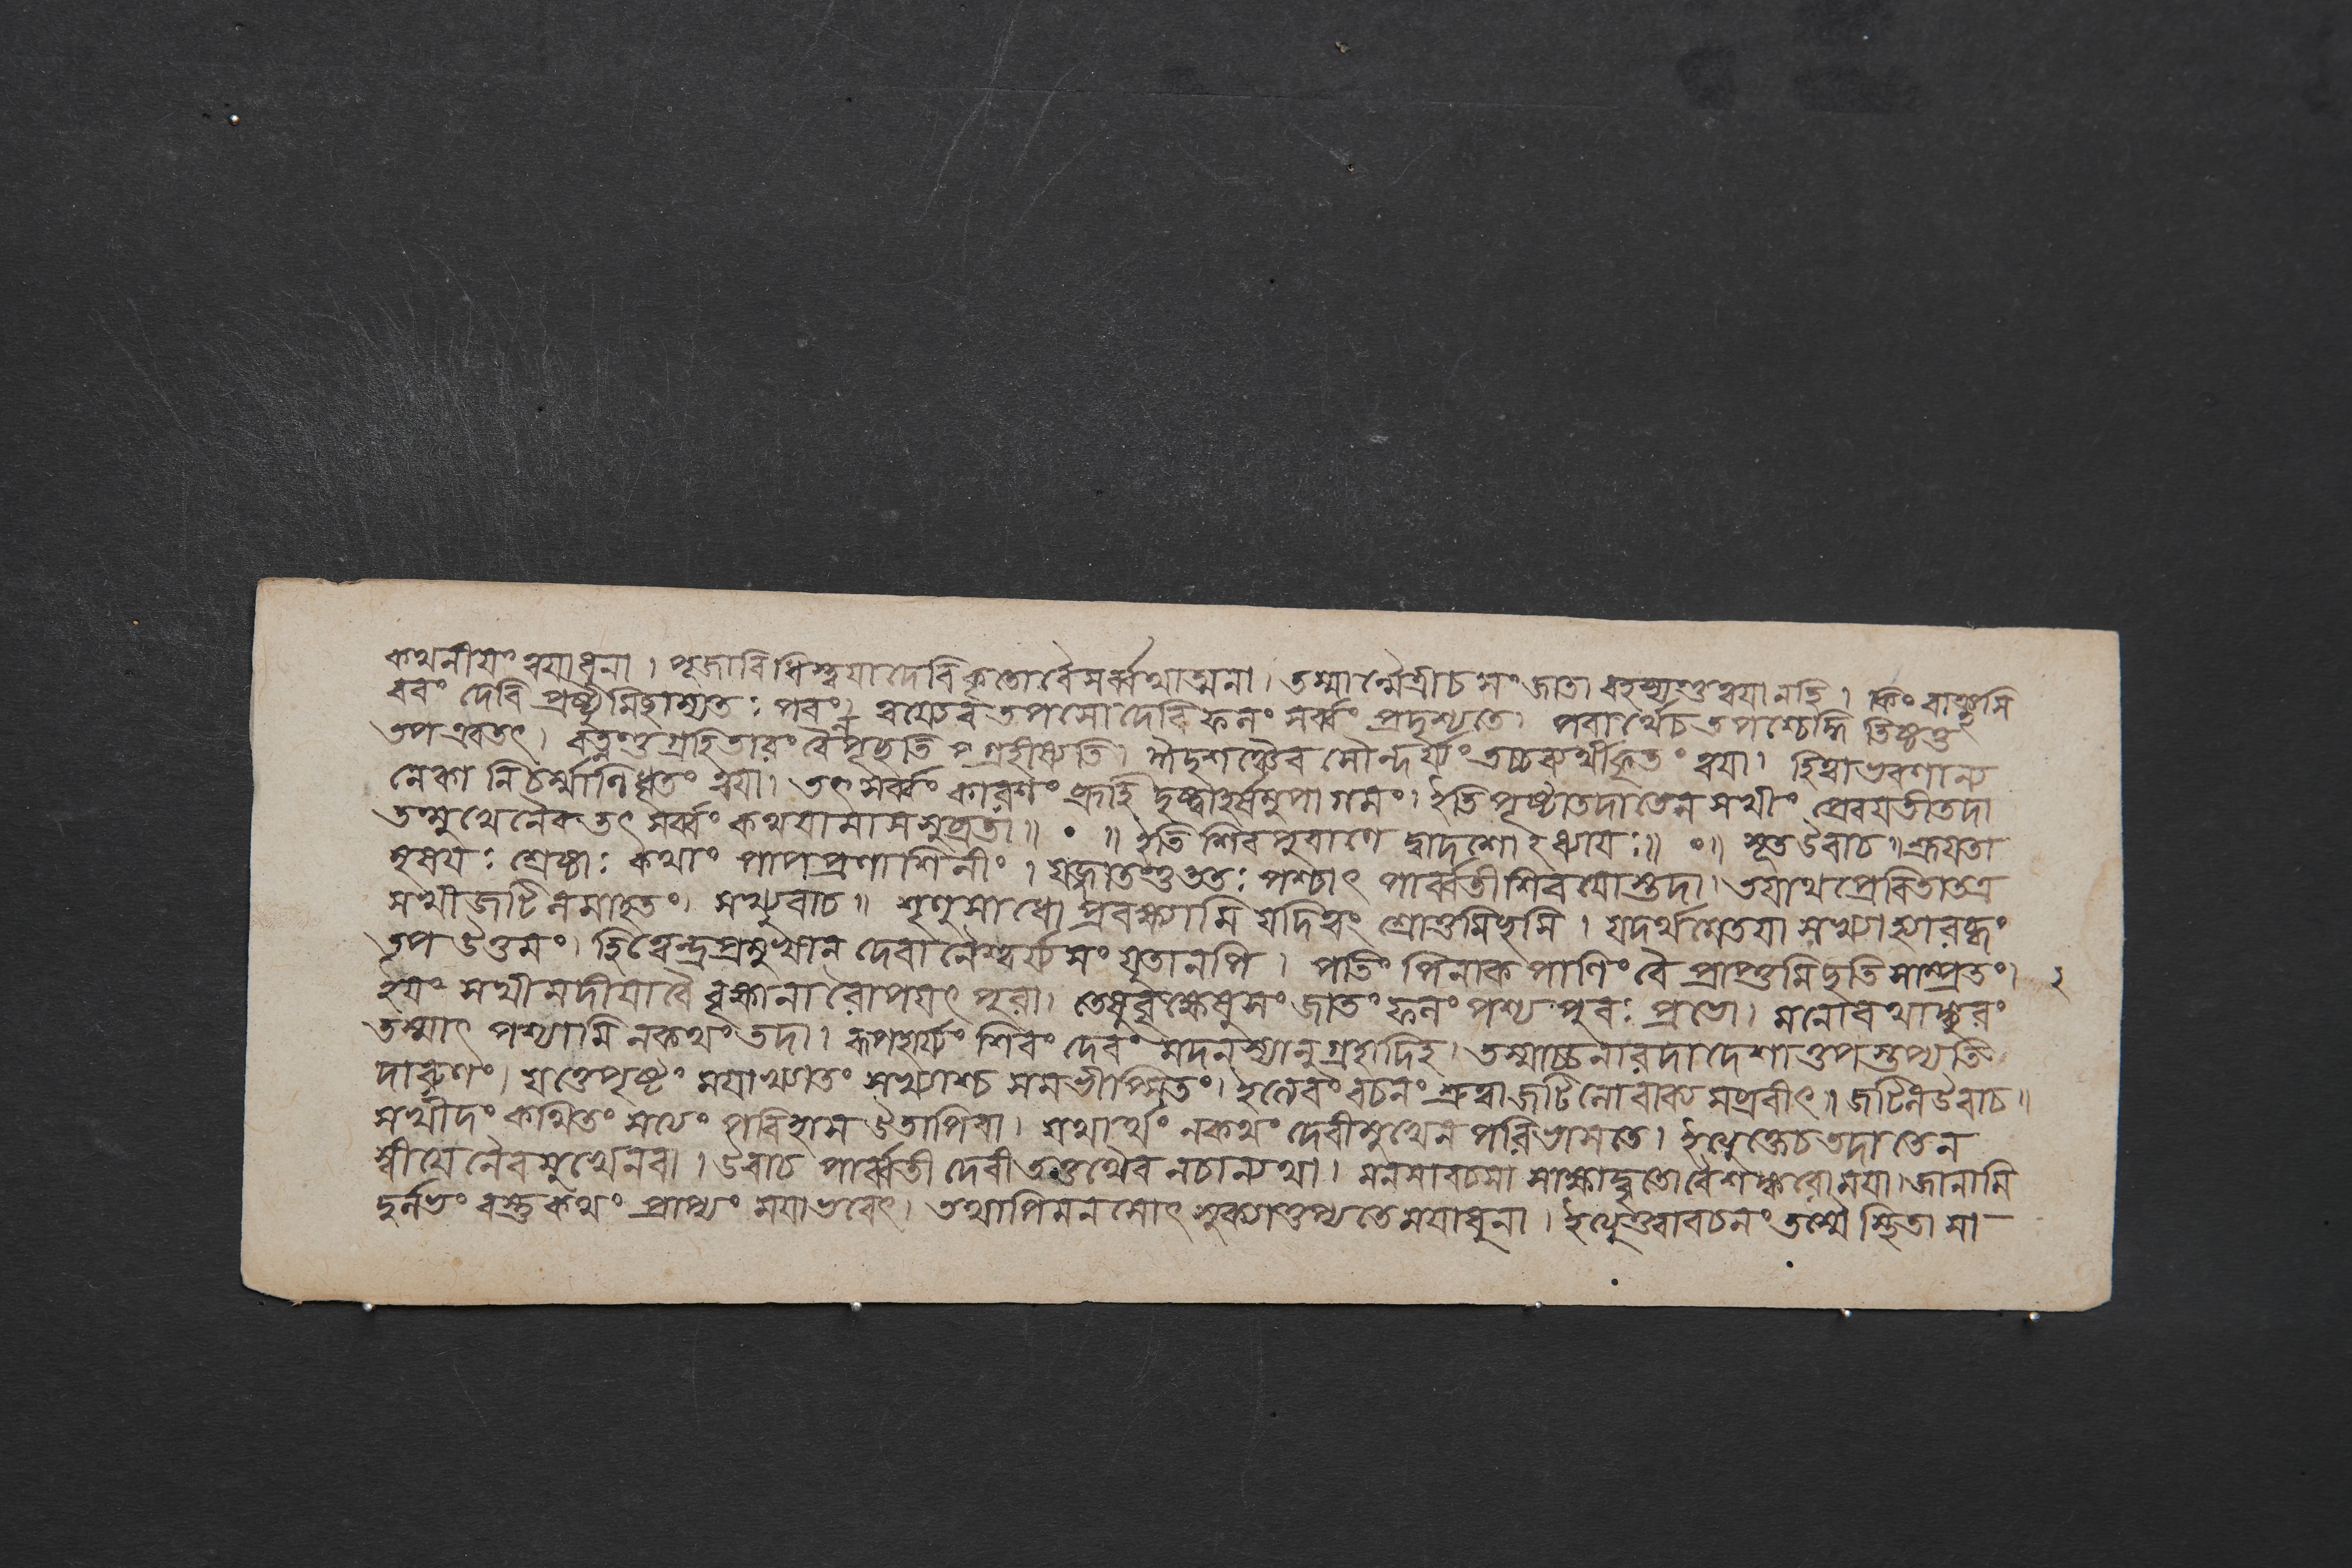 কথনীয়ং ত্বযাধুনা। পূজাবিধিস্ত্বযাদেবি কৃতোবৈসর্ব্বথাত্মনা। তস্মান্মৈত্রীচসংজাতা বহস্যন্তুত্বযানহি। কিং বাঞ্ছসি
ববং দেবি প্রষ্টুমিচ্ছাম্যতঃ পবং। ত্বয্যেব তপসো দেবি ফলং সর্ব্বং প্রদৃশ্যতে। পবার্থেচ তপশ্চেদ্ধি তিষ্ঠতু
তপ এবতৎ। বত্নন্তু গ্রহিতারং বৈ পৃচ্ছতি গ্রহীষ্যতি। ঈদৃশঞ্চৈব সৌন্দর্য্যং তচ্চব্যর্থীকৃতং ত্বযা। হিত্বাভবণান্য
নেকানি চর্ম্মাণি ধৃতং ত্বযা। তৎ সর্ব্বং কারণং ব্রূহি দৃষ্ট্বাহর্ষমুপাগমং। ইতি পৃষ্টাতদাতেন সখীং প্রেবযতীতদা
তন্মুখেনৈব তৎ সর্ব্বং কথযামাসসুব্রতা॥ • ॥ ইতি শিবপুবাণে দ্বাদশোঽধ্যাযঃ॥ •॥ সূতউবাচ॥ শ্রূযতা
মৃষযঃ শ্রেষ্ঠাঃ কথাং পাপপ্রণাশিনীং। যজ্জাতন্তু ততঃ পশ্চাৎ পার্ব্বতীশিবযোস্তদা। তযাথ প্রেবিতাতত্র
সখীজটিলমাহতং। সখ্যুবাচ॥ শৃণুসাধো প্রবক্ষ্যামি যদিত্বং শ্রোতুমিচ্ছসি। যদর্থমেতযা সখ্যাহ্যারব্ধং
তপ উত্তমং। হিত্বেন্দ্রপ্রমুখান দেবানৈশ্বর্য্যসংযুতানপি। পতিং পিনাকপাণিং বৈ প্রাপ্তুমিচ্ছতিসাম্প্রতং। ২
ইযং সখীমদীযাবৈ বৃক্ষানারোপযৎ পুরা। তেষুবৃক্ষেষুসংজাতং ফলং পশ্য পুবঃ প্রভো। মনোবথাঙ্কুরং
তস্মাৎ পশ্যামি নকথং তদা। রূপহার্য্যং শিবং দেবং মদনস্যানুগ্রহাদিহ। তস্মাচ্চনারদাদেশাত্তপস্তপ্যতি
দারুণং। যত্তেপৃষ্টং মযাখ্যাতং সখ্যাশ্চ সমভীপ্সিতং। ইত্যেবং বচনং শ্রুত্বাজটিলোবাক্যমব্রবীৎ॥ জটিলউবাচ॥
সখীদং কথিতং সত্যং পবিহাস উতাপিবা। যথার্থং নকথং দেবীমুখেন পরিভাসতে। ইত্যুক্তেচতদাতেন
স্বীযেনৈবমুখেনবা। উবাচ পার্ব্বতীদেবীতত্তথৈব নচান্যথা। মনসাবচসা সাক্ষাদ্বৃতোবৈশঙ্করোমযা। জানামি
দুর্লভং বস্তুকথং প্রাপ্যং মযাভবেৎ। তথাপিমনসোৎসুক্যাত্তপ্যতেমযাধুনা। ইত্যুত্ত্বাবচনং তস্মৈস্থিতাসা-